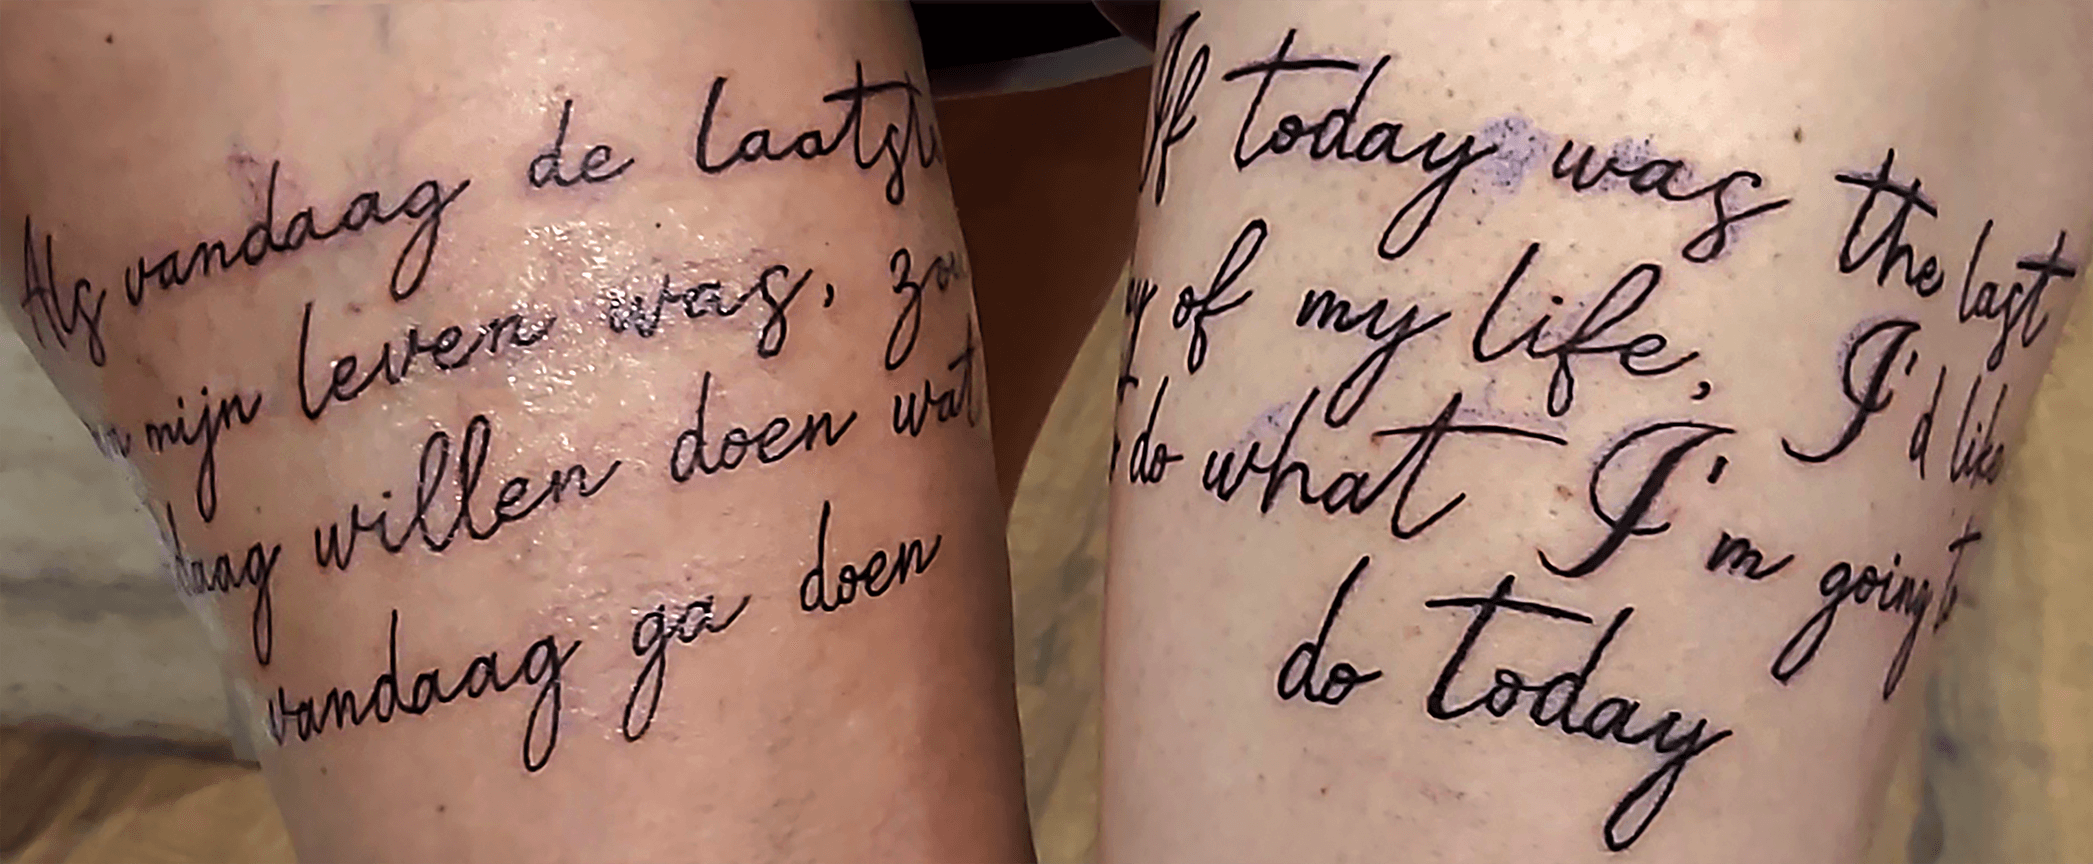 Als vandaag de
mijn leven was,
willen doen wat
vandaag ga doen
If today was the last
of my life, I'd like
do what I'm going to
do today